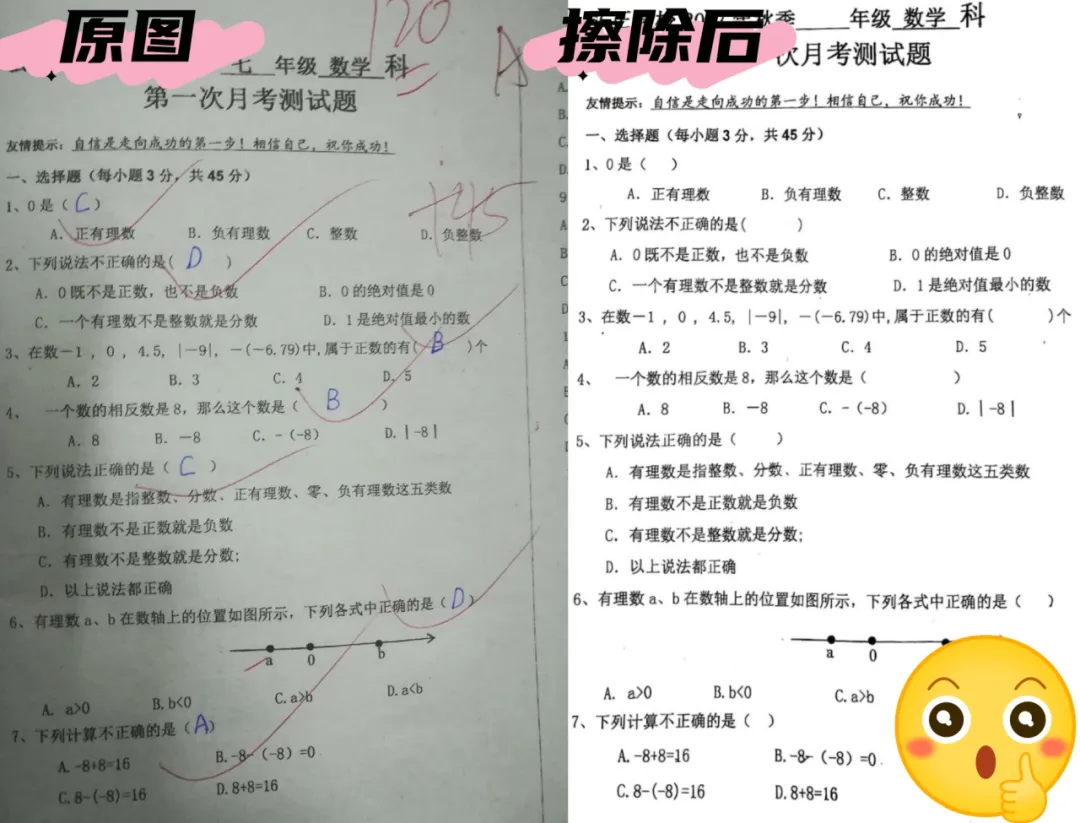 原图
120
A
七 年级 数学 科
第一次月考测试题
友情提示：自信是走向成功的第一步！相信自己，祝你成功！
一、选择题（每小题3分，共45分）
+45
1、0是（ C ）
A．正有理数 B．负有理数 C．整数 D．负整数
2、下列说法不正确的是( D )
A．0既不是正数，也不是负数 B．0的绝对值是0
C．一个有理数不是整数就是分数 D．1是绝对值最小的数
3、在数－1 ，0 ，4.5，|－9|，－(－6.79)中,属于正数的有( B )个
A．2 B．3 C．4 D．5
4、 一个数的相反数是8，那么这个数是（ B ）
A．8 B．－8 C．-（-8） D.|-8|
5、下列说法正确的是（ C ）
A．有理数是指整数、分数、正有理数、零、负有理数这五类数
B．有理数不是正数就是负数
C．有理数不是整数就是分数;
D．以上说法都正确
6、有理数a、b在数轴上的位置如图所示，下列各式中正确的是（ D ）
a 0 b
A．a>0 B.b<0 C.a>b D.a<b
7、下列计算不正确的是（ A ）
A.-8+8=16 B.-8-（-8）=0
C.8-(-8)=16 D.8+8=16
擦除后
年级 数学 科
次月考测试题
友情提示：自信是走向成功的第一步！相信自己，祝你成功！
一、选择题（每小题3分，共45分）
1、0是（ ）
A．正有理数 B．负有理数 C．整数 D．负整数
2、下列说法不正确的是( )
A．0既不是正数，也不是负数 B．0的绝对值是0
C．一个有理数不是整数就是分数 D．1是绝对值最小的数
3、在数－1 ，0 ，4.5，|－9|，－(－6.79)中,属于正数的有( )个
A．2 B．3 C．4 D．5
4、 一个数的相反数是8，那么这个数是（ ）
A．8 B．－8 C．-（-8） D.|-8|
5、下列说法正确的是（ ）
A．有理数是指整数、分数、正有理数、零、负有理数这五类数
B．有理数不是正数就是负数
C．有理数不是整数就是分数;
D．以上说法都正确
6、有理数a、b在数轴上的位置如图所示，下列各式中正确的是（ ）
a 0
A．a>0 B.b<0 C.a>b
7、下列计算不正确的是（ ）
A.-8+8=16 B.-8-（-8）=0
C.8-(-8)=16 D.8+8=16